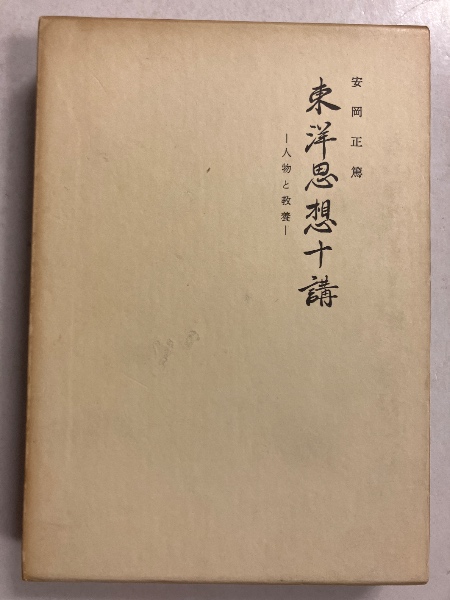 安岡正篤
東洋思想十講
―人物と教養―